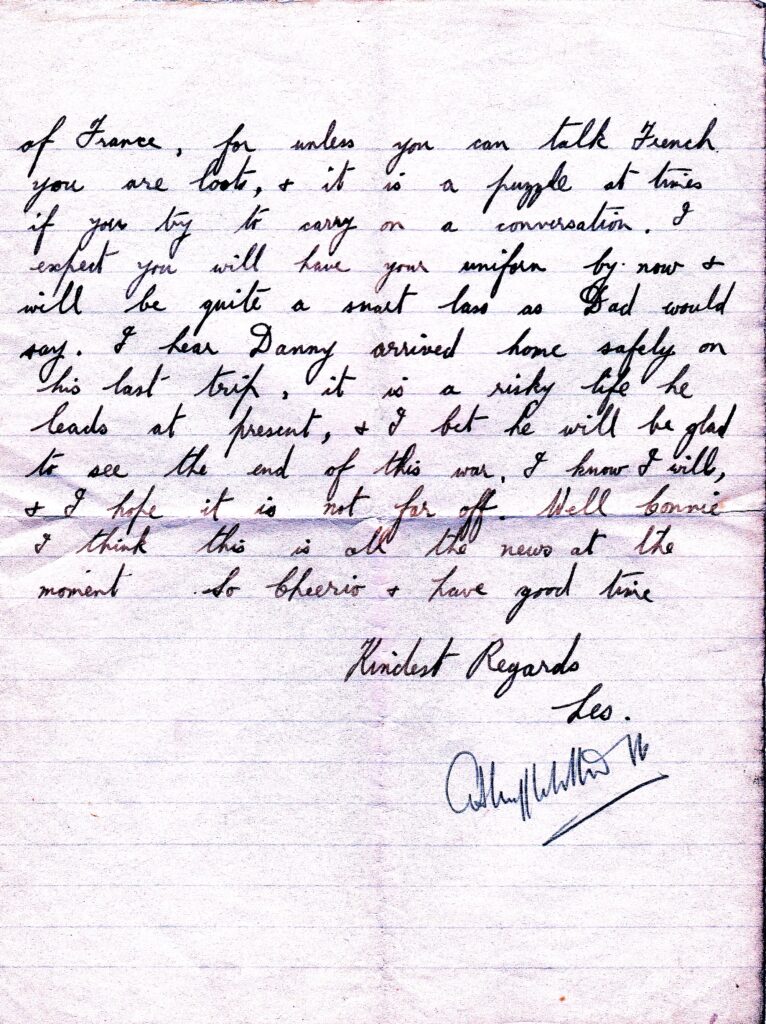 of France, for unless you can talk French
you are loots, & it is a puzzle at times
if you try to carry on a conversation. I
expect you will have your uniform by now &
will be quite a smart lass as Dad would
say. I hear Danny arrived home safely on
his last trip, it is a risky life he
leads at present, & I bet he will be glad
to see the end of this war. I know I will,
& I hope it is not far off. Well Connie
I think this is all the news at the
moment So Cheerio & have good time
Kindest Regards
Les.